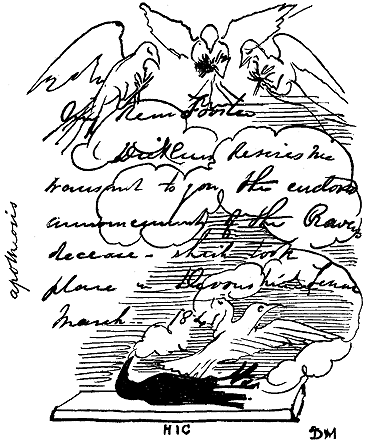 My Dear Forster
Dickens desires me
transmit to you the enclosed
announcement of the Raven's
decease - which took
place in Devonshire Terrace
March 184
apotheosis
HIC
DM